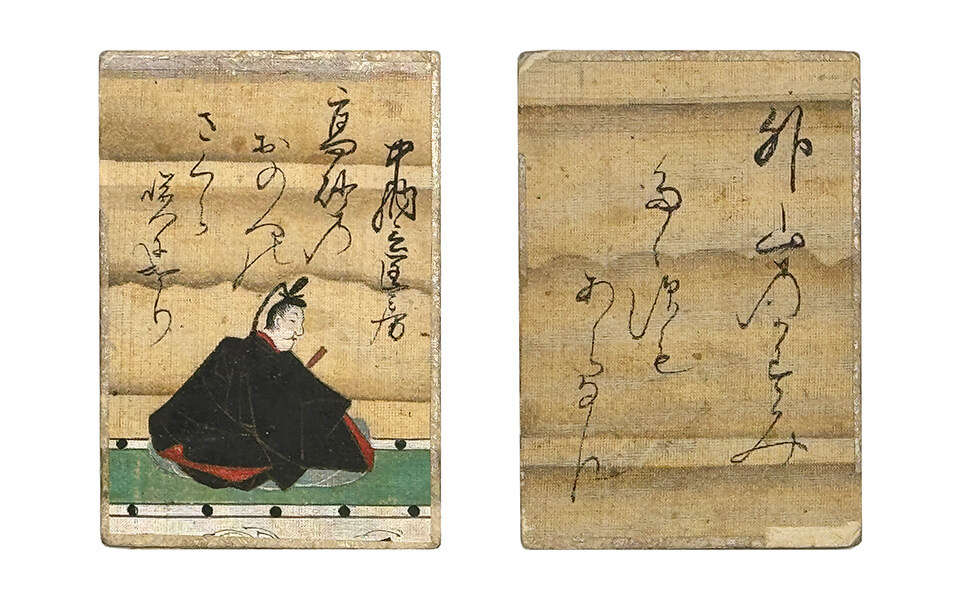 中納言匡房
高砂の
おのへの
さくら
咲にけり
外山のかすみ
たゝすも
あらなん